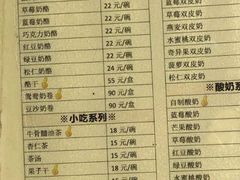 草莓奶酪 22 元/碗
蓝莓奶酪 22 元/碗
巧克力奶酪 22 元/碗
红豆奶酪 22 元/碗
绿豆奶酪 22 元/碗
松仁奶酪 24 元/碗
酪干 55 元/盒
鸳鸯奶卷 90 元/盒
豆沙奶卷 90 元/盒
※小吃系列※
牛骨髓油茶 18 元/碗
杏仁茶 15 元/碗
茶汤 15 元/碗
果子干 18 元/碗
蓝莓双皮奶
草莓双皮奶
燕麦双皮奶
水蜜桃双皮奶
奇异果双皮奶
菠萝双皮奶
松仁双皮奶
※酸奶系
自制酸奶
蓝莓酸奶
芒果酸奶
草莓酸奶
红豆酸奶
水蜜桃酸奶
绿豆酸奶